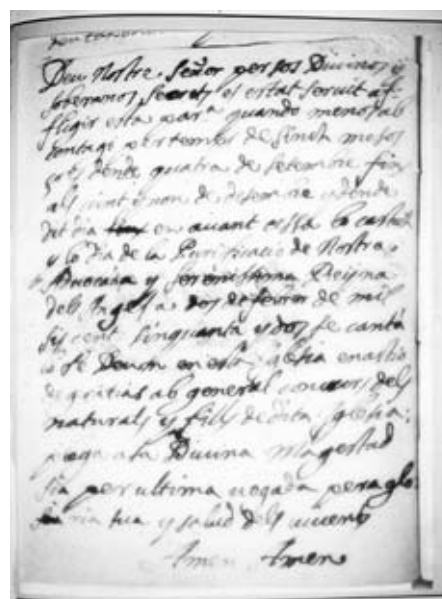 Deu Nostre Señor per sos Divinos y
soberanos secrets es estat servit af
fligir esta parª quando menos ab
contagi per temps de sinch mesos
ço es de de quatra de setembre fins
als vint i enou de desembre
dit dia en avant cessa lo
y lo dia de la Purificacio de Nostra
Advocada y serenissima Reyna
dels Angels a dos de febrer de mil
sis cent sinquanta y dos se cantà
lo Te Deum en esta Iglesia en actio
de gratias ab general concurs dels
naturals y fills de dita Iglesia:
plega a la Divina Magestad
sia per ultima vegada pera glo
ria sua y salud dels vivents
Amen Amen